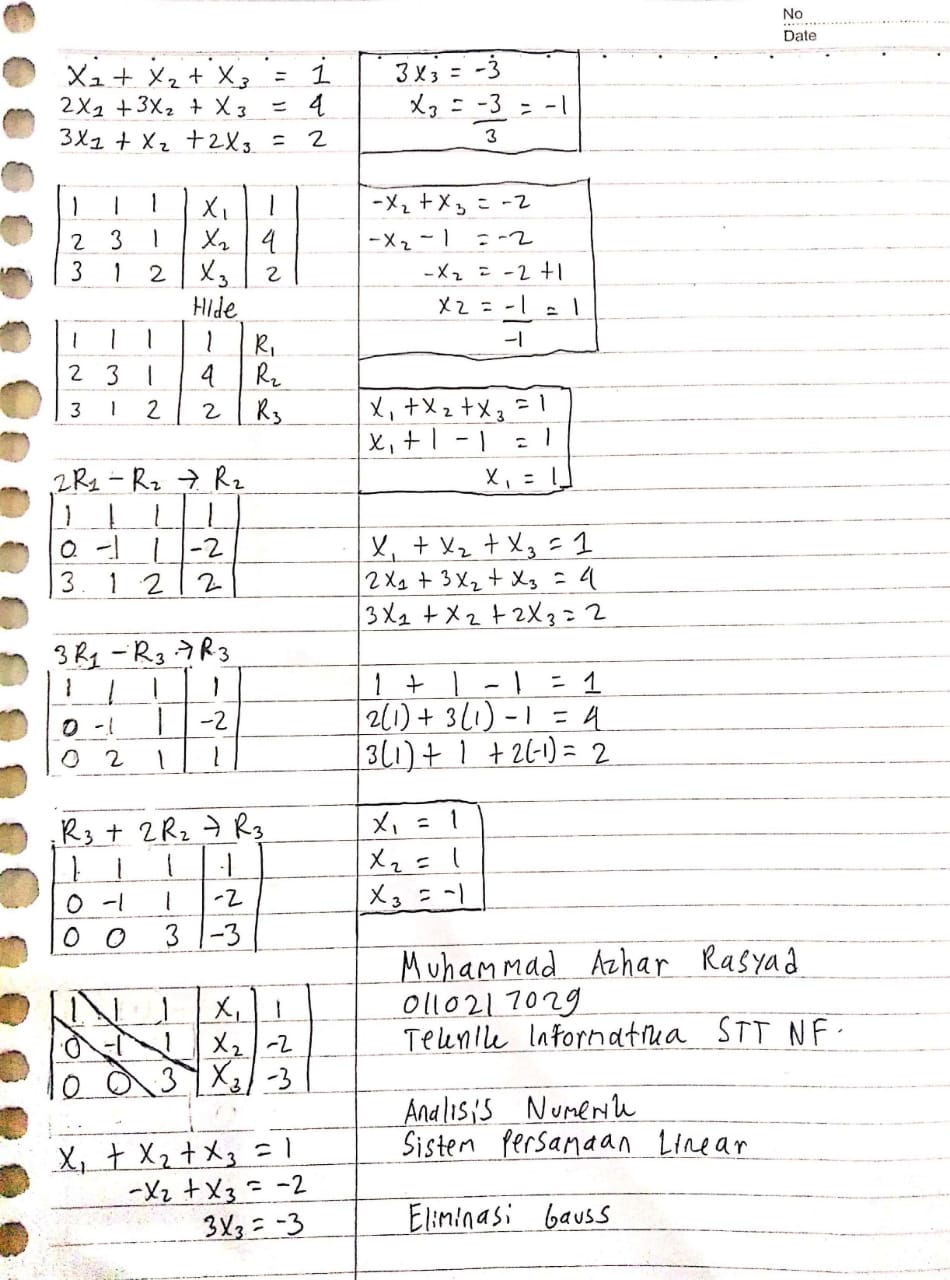 No
Date
X1 + X2 + X3 = 1
2X1 + 3X2 + X3 = 4
3X1 + X2 + 2X3 = 2
| 1 1 1 | X1 | 1 |
| 2 3 1 | X2 | 4 |
| 3 1 2 | X3 | 2 |
HIde
| 1 1 1 | 1 | R1
| 2 3 1 | 4 | R2
| 3 1 2 | 2 | R3
2R1 - R2 → R2
| 1 1 1 | 1 |
| 0 -1 1 | -2 |
| 3 1 2 | 2 |
3R1 - R3 → R3
| 1 1 1 | 1 |
| 0 -1 1 | -2 |
| 0 2 1 | 1 |
R3 + 2R2 → R3
| 1 1 1 | 1 |
| 0 -1 1 | -2 |
| 0 0 3 | -3 |
| 1 1 1 | X1 | 1 |
| 0 -1 1 | X2 | -2 |
| 0 0 3 | X3 | -3 |
X1 + X2 + X3 = 1
-X2 + X3 = -2
3X3 = -3
3X3 = -3
X3 = -3/3 = -1
-X2 + X3 = -2
-X2 - 1 = -2
-X2 = -2 + 1
X2 = -1/-1 = 1
X1 + X2 + X3 = 1
X1 + 1 - 1 = 1
X1 = 1
X1 + X2 + X3 = 1
2X1 + 3X2 + X3 = 4
3X1 + X2 + 2X3 = 2
1 + 1 - 1 = 1
2(1) + 3(1) - 1 = 4
3(1) + 1 + 2(-1) = 2
X1 = 1
X2 = 1
X3 = -1
Muhammad Azhar Rasyad
0110217029
Teknik Informatika STT NF.
Analisis Numerik
Sistem Persamaan Linear
Eliminasi Gauss